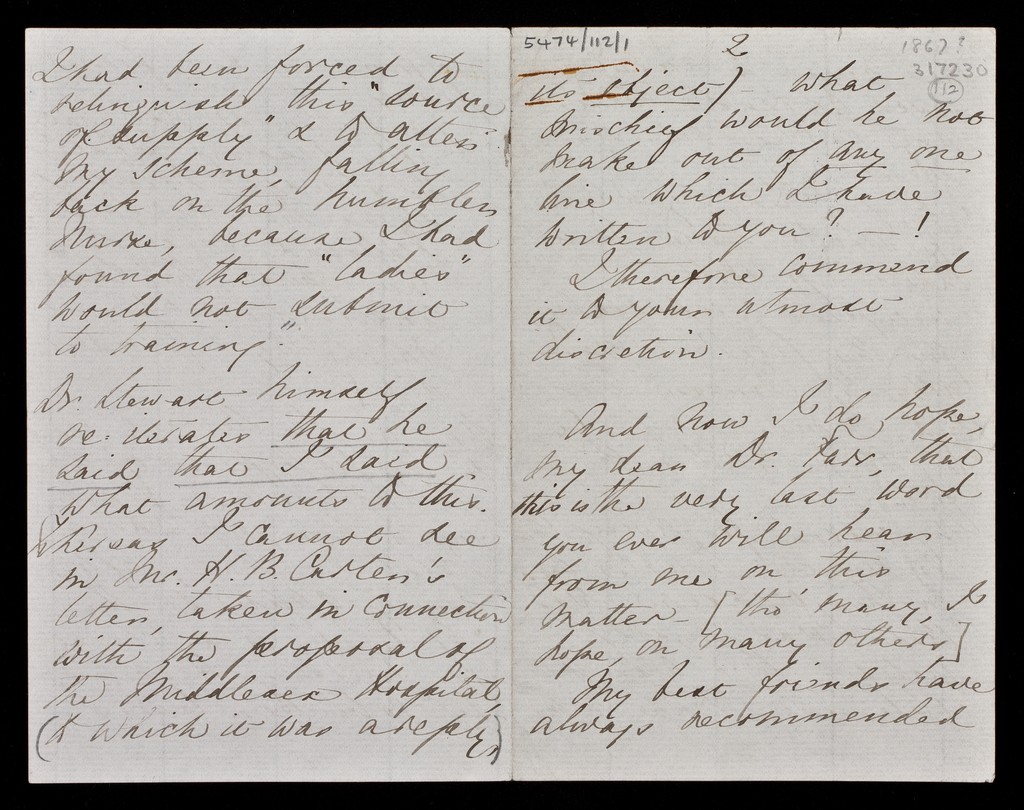 I had been forced to
relinquish this "source
of supply" & to alter
my scheme, falling
back on the humbler
Nurse, because I had
found that "ladies"
would not submit
to training".
Dr. Stewart himself
re-iterates that he
said that I said
what amounts to this.
Whereas I cannot see
in Mr. H. B. Carter's
letter, taken in connection
with the proposal of
the Middlesex Hospital,
(to which it was a reply)
5474/112/1
2
1867?
317230
112
its object) - what
mischief would he not
make out of any one
line which I have
written to you? - !
I therefore commend
it to your utmost
discretion.
And now I do hope,
my dear Dr. Farr, that
this is the very last word
you ever will hear
from me on this
matter - [tho' many, I
hope, on many others]
My best friends have
always recommended